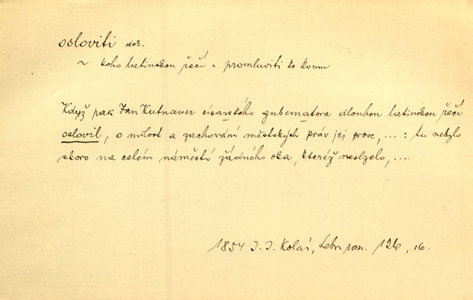 osloviti dok.
~ koho latinskou řečí = promluviti ke komu
Když pak Jan Kutnaver císarského gubernatora dlouhou latinskou řečí
oslovil, o milost a zachování městských práv jej prose, ...: tu nebylo
skoro na celém náměstí žádného oka, kteréž neslzelo, ...
1854 J. J. Kolár, Lebr. rom. 126, 16.